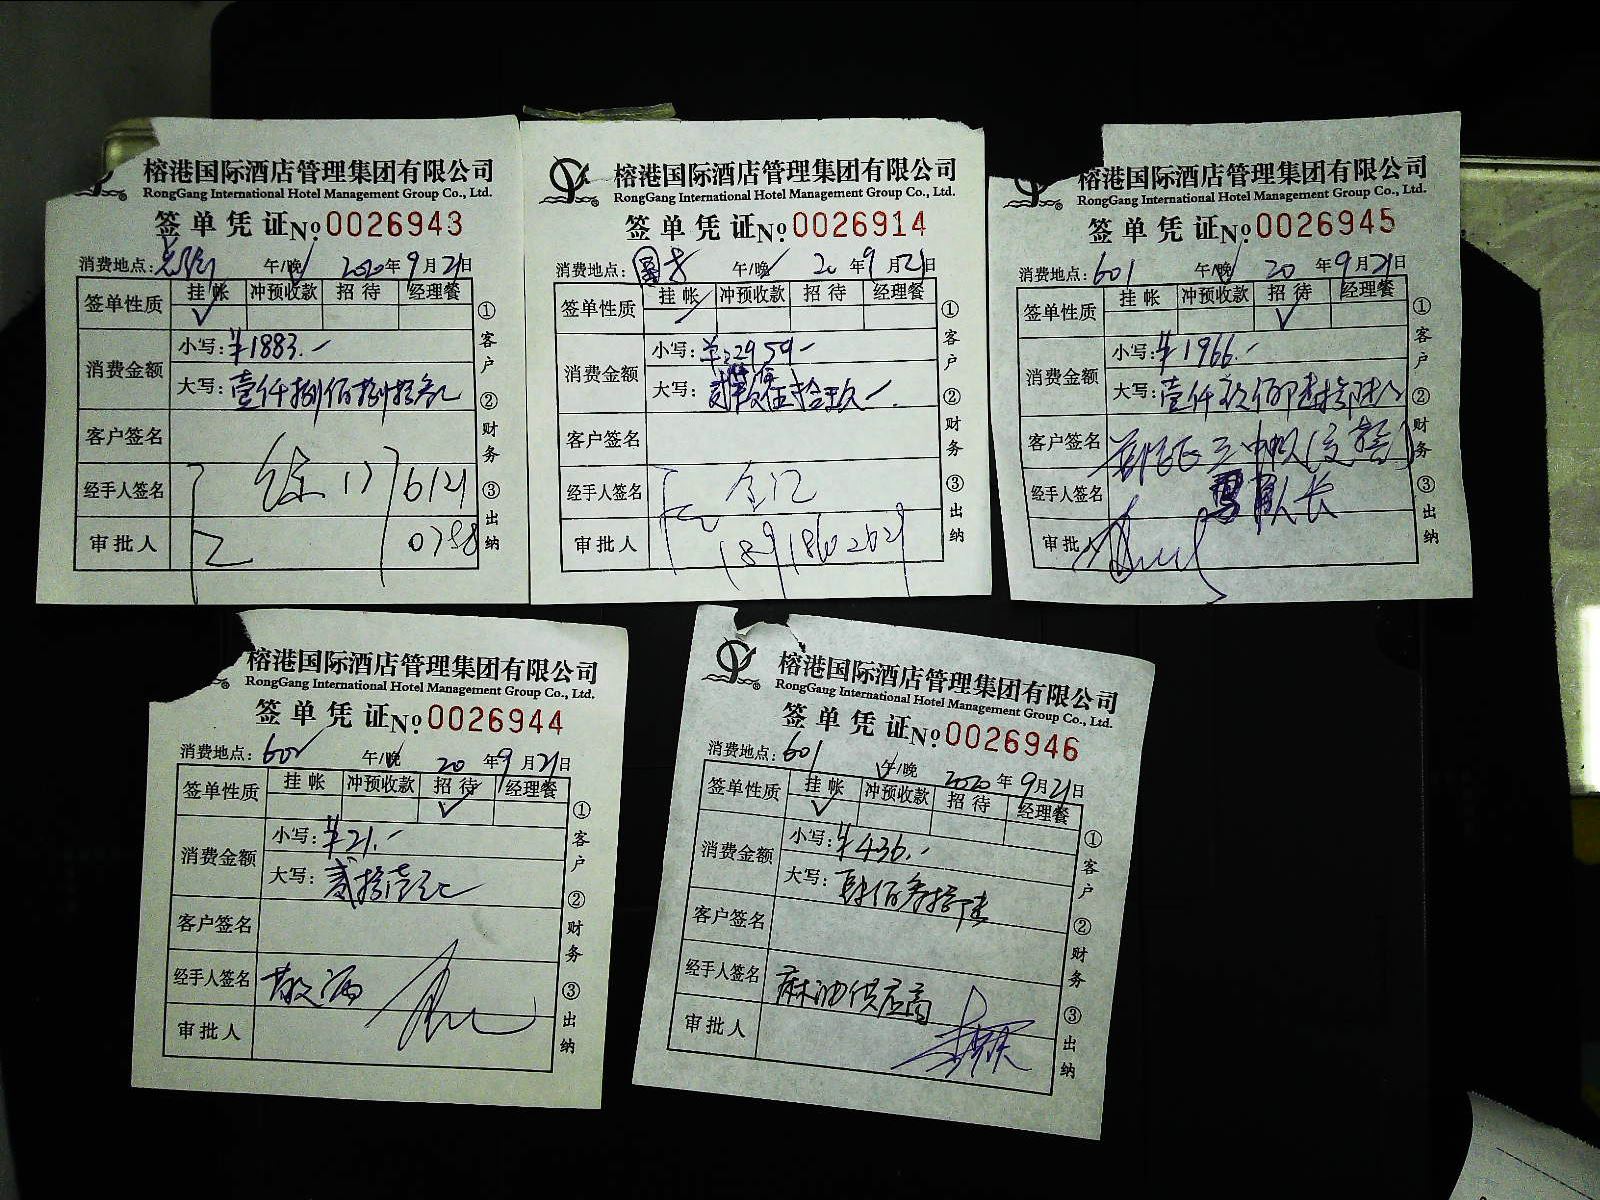 榕港国际酒店管理集团有限公司
RongGang International Hotel Management Group Co., Ltd.
签单凭证 No 0026943
消费地点: 午/晚 2020年9月21日
签单性质 挂帐 冲预收款 招待 经理餐
消费金额 小写:¥1883.-
大写:壹仟捌佰捌拾叁元
客户签名
经手人签名
审批人
①客户 ②财务 ③出纳
榕港国际酒店管理集团有限公司
RongGang International Hotel Management Group Co., Ltd.
签单凭证 No 0026914
消费地点: 午/晚 20年9月21日
签单性质 挂帐 冲预收款 招待 经理餐
消费金额 小写:
大写:
客户签名
经手人签名
审批人
①客户 ②财务 ③出纳
榕港国际酒店管理集团有限公司
RongGang International Hotel Management Group Co., Ltd.
签单凭证 No 0026945
消费地点:601 午/晚 20年9月21日
签单性质 挂帐 冲预收款 招待 经理餐
消费金额 小写:¥1966.-
大写:壹仟玖佰陆拾陆元
客户签名
经手人签名 队长
审批人
①客户 ②财务 ③出纳
榕港国际酒店管理集团有限公司
RongGang International Hotel Management Group Co., Ltd.
签单凭证 No 0026944
消费地点:602 午/晚 20年9月21日
签单性质 挂帐 冲预收款 招待 经理餐
消费金额 小写:¥21.-
大写:贰拾壹元
客户签名
经手人签名 敬酒
审批人
①客户 ②财务 ③出纳
榕港国际酒店管理集团有限公司
RongGang International Hotel Management Group Co., Ltd.
签单凭证 No 0026946
消费地点:601 午/晚 2020年9月21日
签单性质 挂帐 冲预收款 招待 经理餐
消费金额 小写:¥436.-
大写:肆佰叁拾陆
客户签名
经手人签名 麻油供应商
审批人
①客户 ②财务 ③出纳